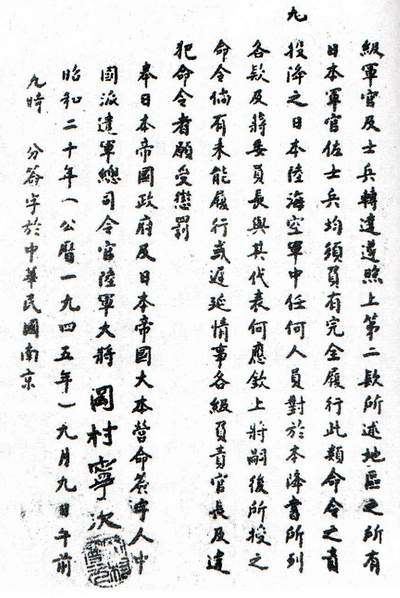 級軍官及士兵轉達遵照上第二款所述地區之所有
日本軍官佐士兵均須負有完全履行此類命令之責
九 投降之日本陸海空軍中任何人員對於本降書所列
各款及蔣委員長與其代表何應欽上將嗣後所授之
命令倘有未能履行或遲延情事各級負責官長及違
犯命令者願受懲罰
奉日本帝國政府及日本帝國大本營命簽字人中
國派遣軍總司令官陸軍大將 岡村寧次
昭和二十年（公曆一九四五年）九月九日午前
九時 分簽字於中華民國南京